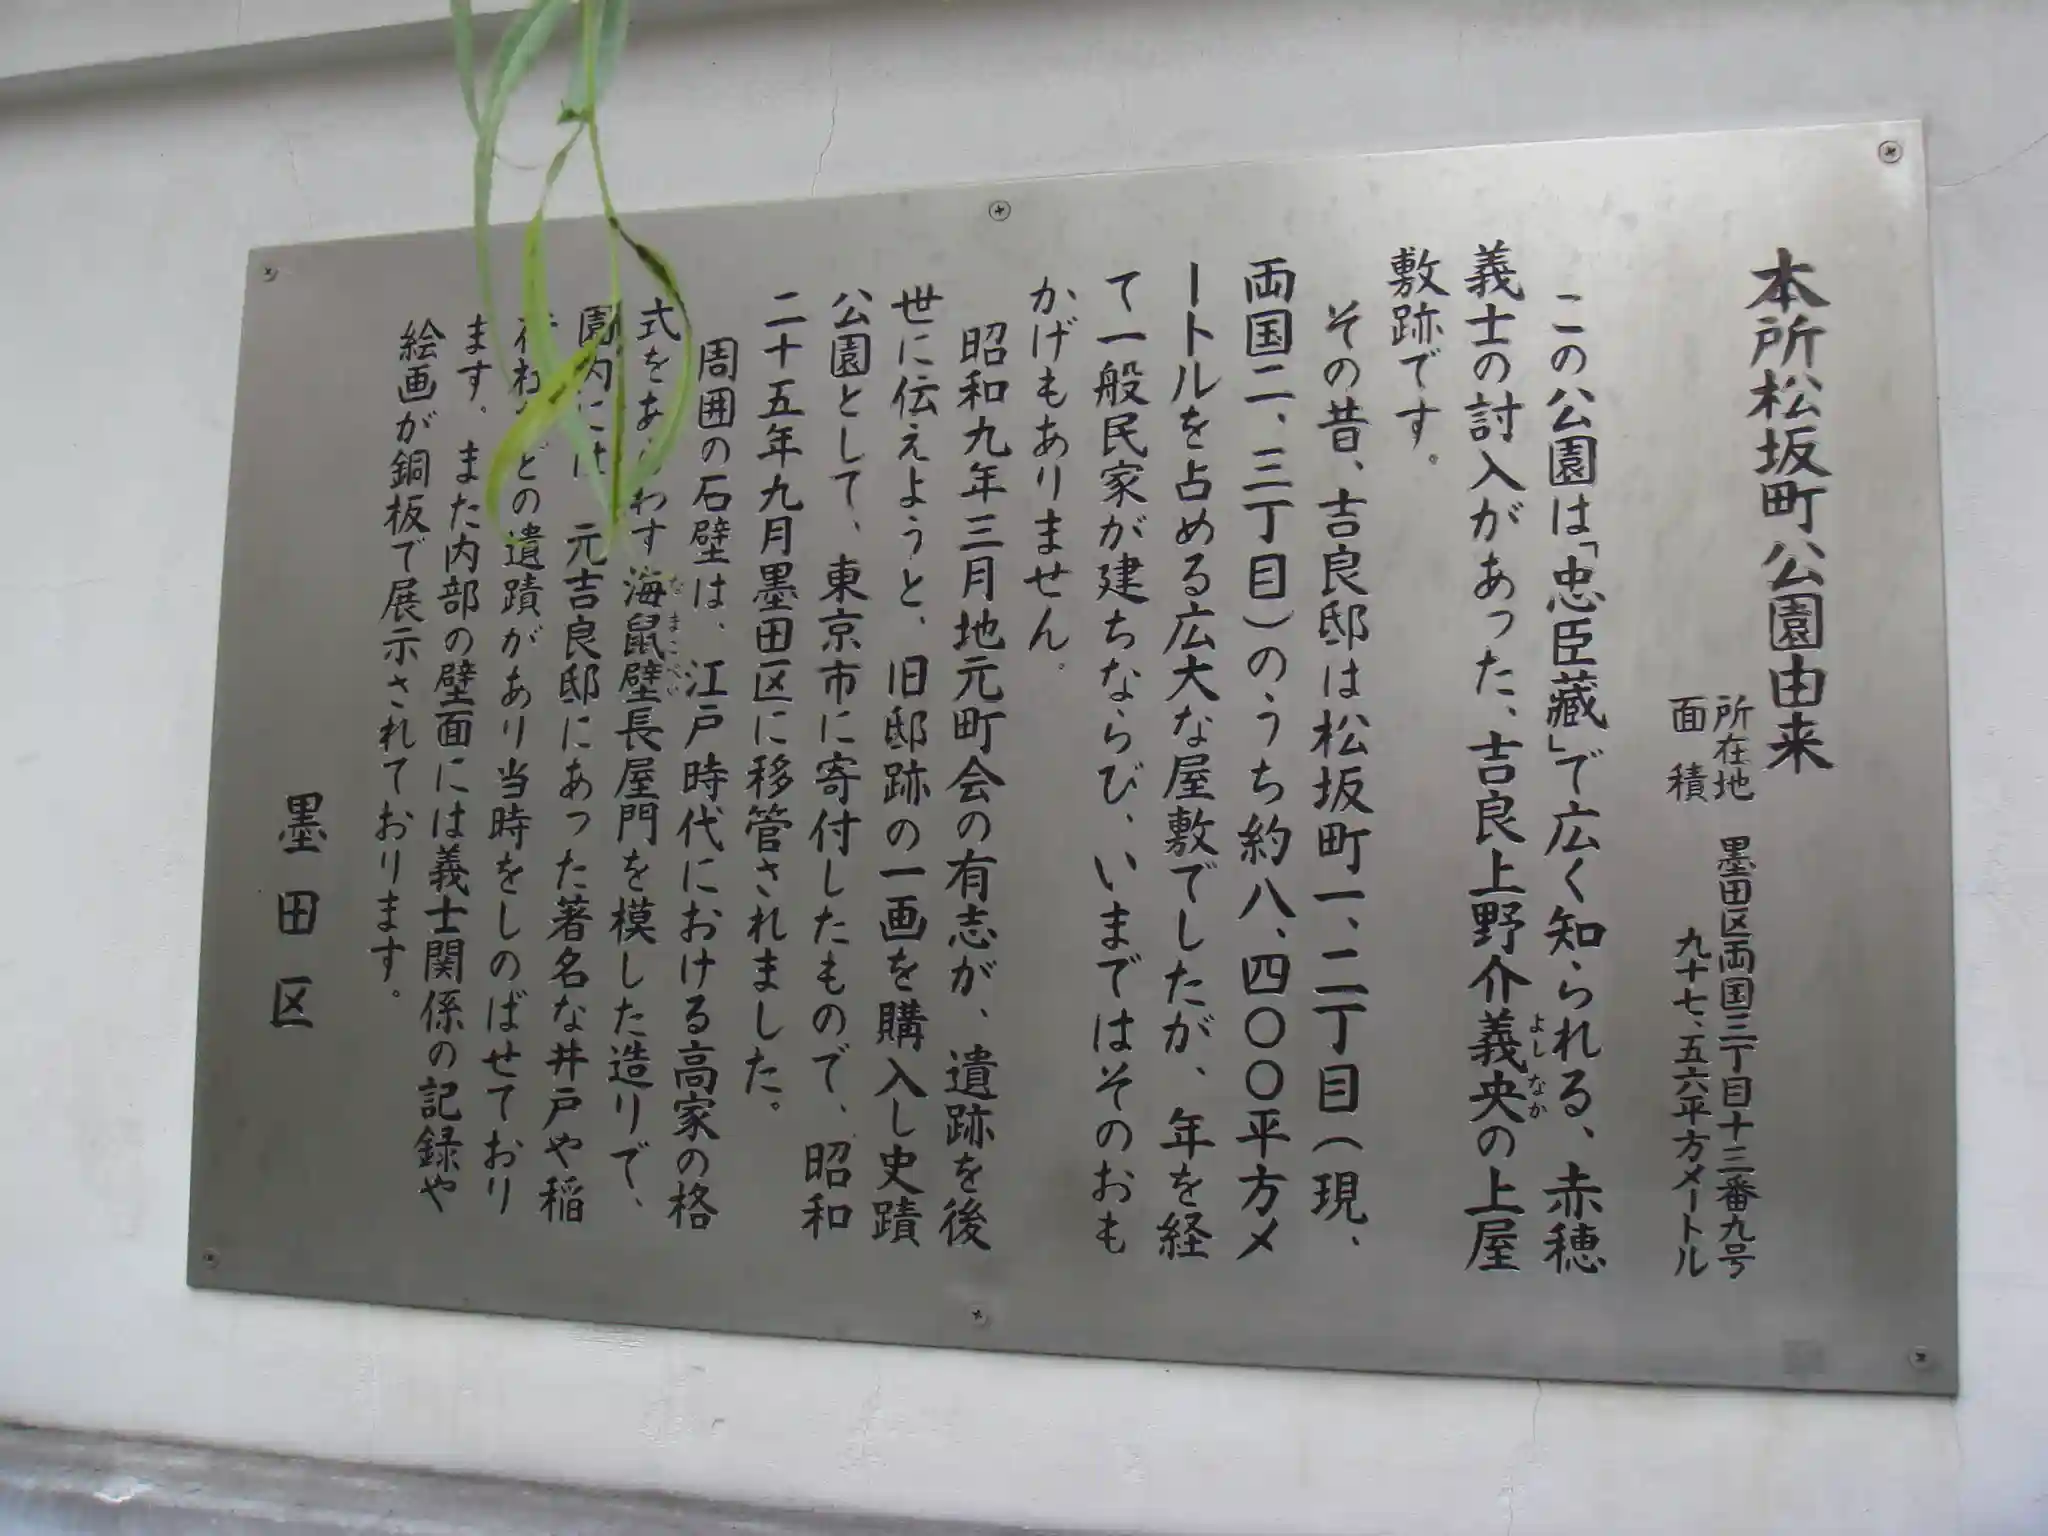 本所松坂町公園由来
所在地 墨田区両国三丁目十三番九号
面積 九十七、五六平方メートル
この公園は「忠臣藏」で広く知られる、赤穂
義士の討入があった、吉良上野介義央の上屋
よしなか
敷跡です。
その昔、吉良邸は松坂町一、二丁目(現、
両国二、三丁目)のうち約八、四〇〇平方メ
ートルを占める広大な屋敷でしたが、年を経
て一般民家が建ちならび、いまではそのおも
かげもありません。
昭和九年三月地元町会の有志が、遺跡を後
世に伝えようと、旧邸跡の一画を購入し史蹟
公園として、東京市に寄付したもので、昭和
二十五年九月墨田区に移管されました。
周囲の石壁は、江戸時代における高家の格
式をあらわす海鼠壁長屋門を模した造りで、
なまこべい
園内には 元吉良邸にあった著名な井戸や稲
どの遺蹟があり当時をしのばせており
ます。また内部の壁面には義士関係の記録や
絵画が銅板で展示されております。
墨田区